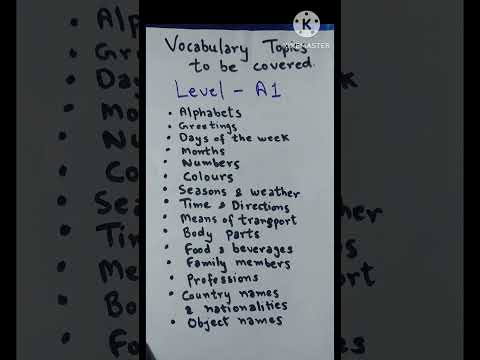 Vocabulary Topics
to be covered.
Level - A1
• Alphabets
• Greetings
• Days of the week
• Months
• Numbers
• Colours
• Seasons & weather
• Time & Directions
• Means of transport
• Body parts
• Food & beverages
• Family members
• Professions
• Country names
& nationalities
• Object names
K
KINEMASTER